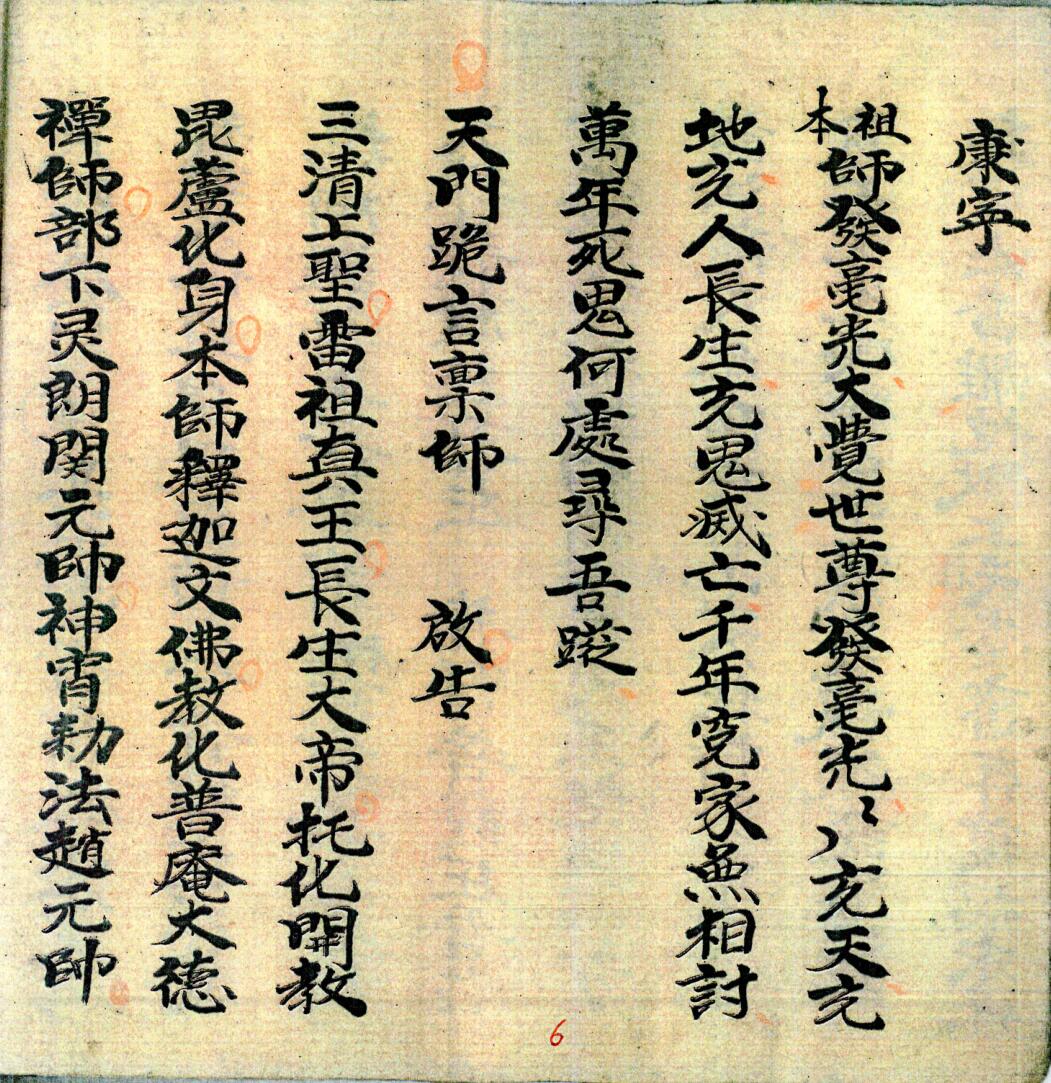 康寧
祖本師發毫光大覺世尊發毫光〻八充天充
地充人長生充鬼滅亡千年冤家無相討
萬年死鬼何處尋吾蹤
天門跪言稟師 啟告
三清上聖雷祖真王長生大帝托化開教
毘蘆化身本師釋迦文佛教化普庵大德
禪師部下灵朗関元帥神霄勑法趙元帥
6